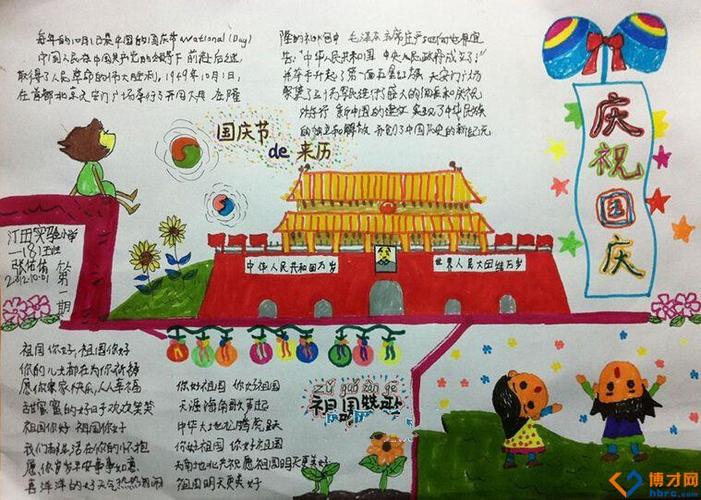 每年的10月1日是中国的国庆节 National (Day)
中国人民在中国共产党的领导下 前赴后继
取得了人民革命的伟大胜利，1949年10月1日，
在首都北京天安门广场举行了开国大典 在隆
隆的礼炮声中 毛泽东主席庄严地向世界宣
告："中华人民共和国 中央人民政府成立了！"
并亲手升起了第一面五星红旗 天安门广场
新中国的建立 实现了中华民族
的独立和解放 开创了中国历史的新纪元
国庆节
de 来历
庆祝国庆
江田实验小学
一
2012.10.01
第一期
中华人民共和国万岁
世界人民大团结万岁
祖国你好，祖国你好
你的儿女都在为你祈祷
愿你家家快乐，人人幸福
甜蜜蜜的好日子次次笑笑
祖国你好 祖国你好
我们都生活在你的怀抱
愿你岁岁平安事事如意
喜洋洋的好天气热热闹闹
你好祖国 你好祖国
天涯海角歌声起
中华大地龙腾虎跃
你好祖国 你好祖国
愿祖国明天更美好
祖国明天更美好
祖国
博才网
hbrc.com